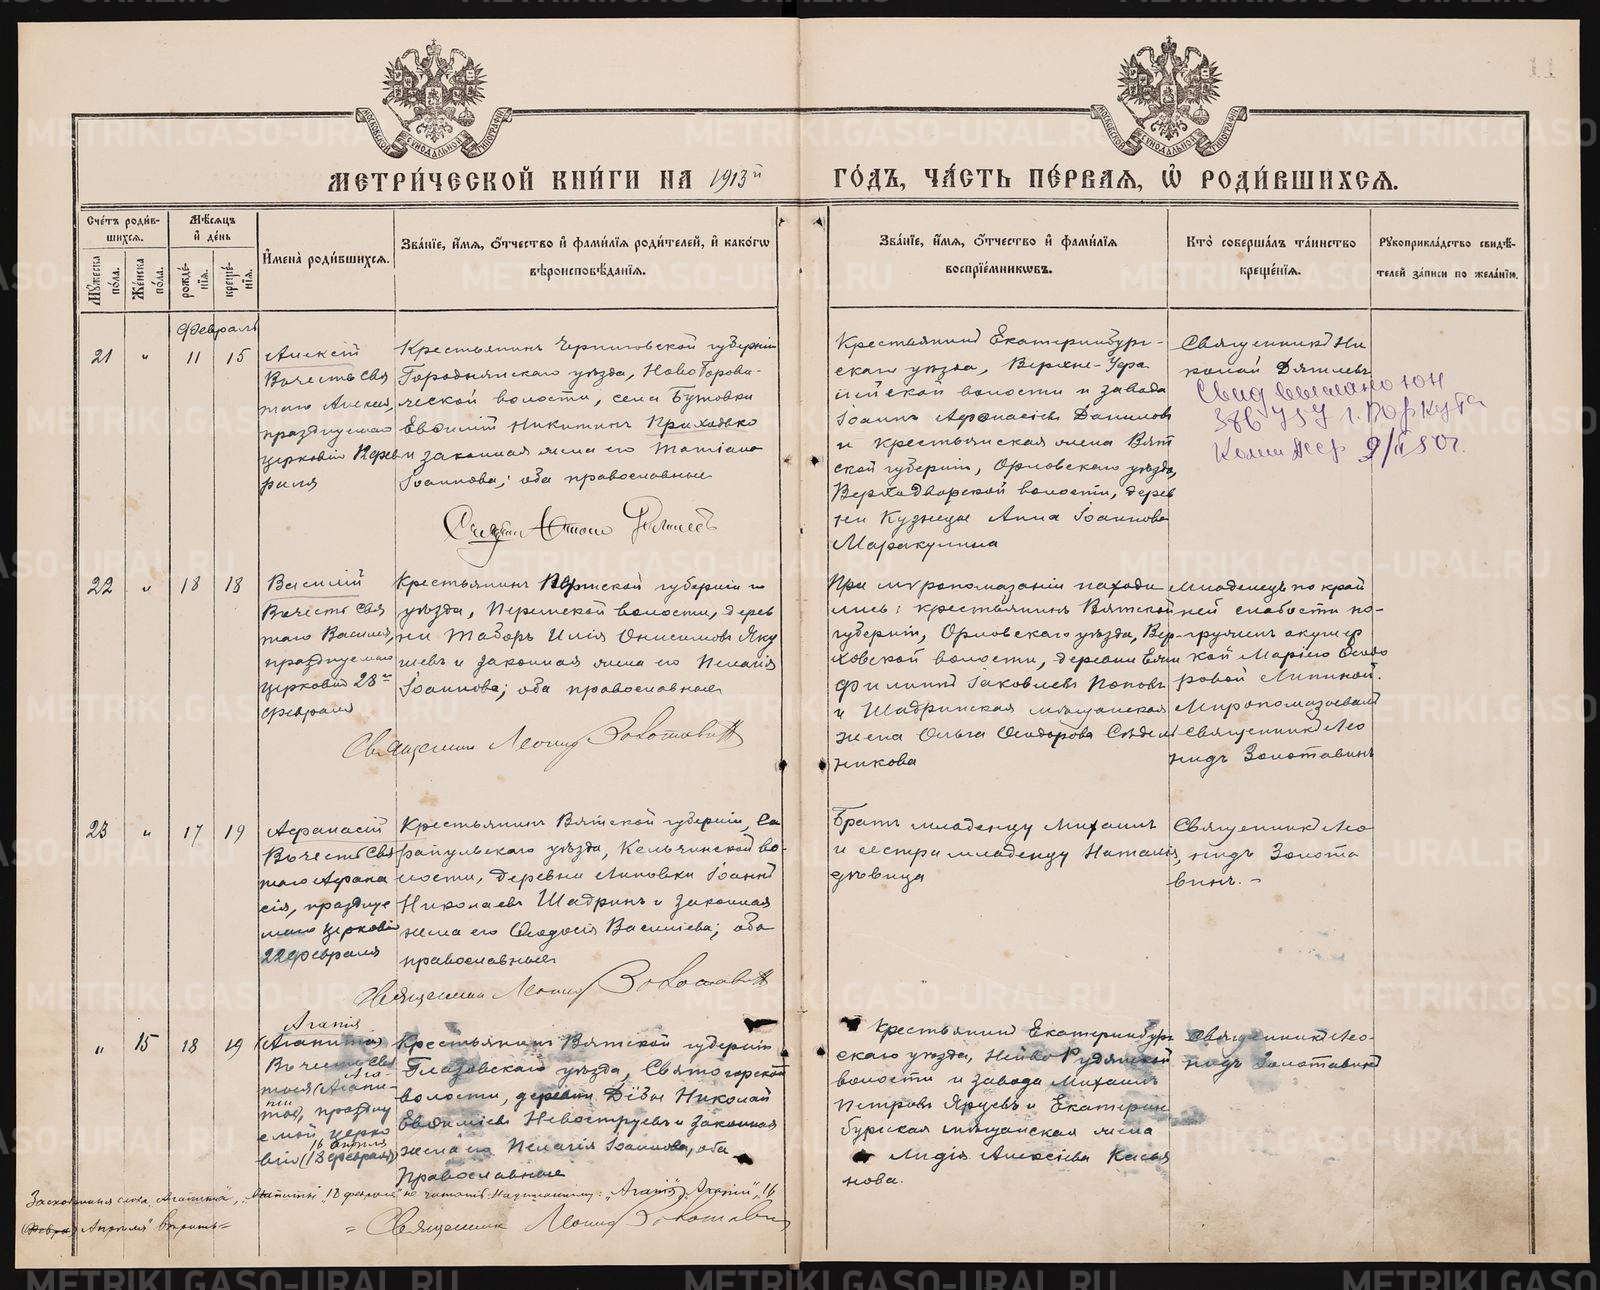 11
МОСКОВСКОЙ СѴНОДАЛЬНОЙ ТИПОГРАФІИ
МОСКОВСКОЙ СѴНОДАЛЬНОЙ ТИПОГРАФІИ
МЕТРИ́ЧЕСКОЙ КНИ́ГИ НА 1913й ГО́ДЪ, ЧА́СТЬ ПЕ́РВАЯ, Ѡ РОДИ́ВШИХСЯ.
Сче́тъ роди́в-
шихся.
Мѣ́сяцъ
и де́нь
Му́жеска по́ла.
Же́нска по́ла.
рожде́-
нїя.
креще́-
нїя.
Имена̀ роди́вшихся.
Зва́нїе, и́мя, ѻ́тчество и фами́лїя роди́телей, и како́гѡ
вѣроисповѣ́данїя.
Зва́нїе, и́мя, ѻ́тчество и фами́лїя
воспрїе́мникѡвъ.
Кто̀ соверша́лъ та́инство
креще́нїя.
Рꙋкоприкла́дство свидѣ́-
телей за́писи по жела́нїю.
Февраль
21 " 11 15
Алексій
Въ честь Свя
таго Алексія,
празднуемаго
церковію
раля
Крестьянинъ Черниговской губерніи
Городнянскаго уѣзда, Новоборови-
ческой волости, села Бутовки
Евфимій Никитинъ Приходько
и законная жена его Татіана
Іоаннова; оба православные
Крестьянинъ Екатеринбург-
скаго уѣзда, Верхне-Уфа
лейской волости и завода
Іоаннъ Афанасіевъ Даниловъ
и крестьянская жена Вят
ской губерніи, Орловскаго уѣзда,
Верходворской волости, дерев
ни Кузнецы Анна Іоаннова
Маракулина
Священникъ Ни
колай Дягилевъ
Свид выслано
г. Воркута
Коми АССР 9/ 50г.
22 " 18 18
Василій
Въ честь Свя
таго Василія,
празднуемаго
церковію 28го
февраля
Крестьянинъ Пермской губерніи и
уѣзда, Пермской волости, дерев
ни Таборъ Илія Онисимовъ Яку
шевъ и законная жена его Пелагія
Іоаннова; оба православные
Священникъ Леонидъ Золотавинъ
При мѵропомазаніи находи
лись: крестьянинъ Вятской
губерніи, Орловскаго уѣзда, Вер-
ховской волости, деревни
Филиппъ Іаковлевъ Поповъ
и Шадринская мѣщанская
жена Ольга Ѳеодорова
никова
Младенецъ по край
ней слабости по-
груженъ акушер
кой Маріею Ѳеодо
ровой Липиной.
Мѵропомазывалъ
Священникъ Лео
нидъ Золотавинъ
23 " 17 19
Афанасій
Въ честь Свя
таго Афана
сія, праздну
емаго церковію
22 февраля
Крестьянинъ Вятской губерніи, Са
рапульскаго уѣзда, Кельчинской во-
лости, деревни Липовки Іоаннъ
Николаевъ Шадринъ и законная
жена его Ѳеодосія Василіева; оба
православные
Священникъ Леонидъ Золотавинъ
Братъ младенцу Михаилъ
и сестра младенцу Наталія,
дѣвица
Священникъ Лео
нидъ Золота
винъ. –
" 15 18 19
Агапія
(Агапита)
Въ честь Свя
тыя (Агапи-
Ага-
піи
ты), праздну
емой церко
16 апрѣля
вію (18 февраля)
Крестьянинъ Вятской губерніи
Глазовскаго уѣзда, Святогорской
волости, деревни Николай
Евфиміевъ Невоструевъ и законная
жена его Пелагія Іоаннова, оба
православные
Крестьянинъ Екатеринбург
скаго уѣзда, Нейво Рудянской
волости и завода Михаилъ
Петровъ Ярцевъ и Екатерин
бургская мѣщанская жена
Лидія Алексіева Касья
нова.
Священникъ Лео-
нидъ Золотавинъ
слова „Агапита", „Агапиты" „18 февраля" не читать. Надписанному: „Агапія", „Агапіи", „16
Апрѣля" вѣрить=
= Священникъ Леонидъ Золотавинъ
METRIKI.GASO-URAL.RU